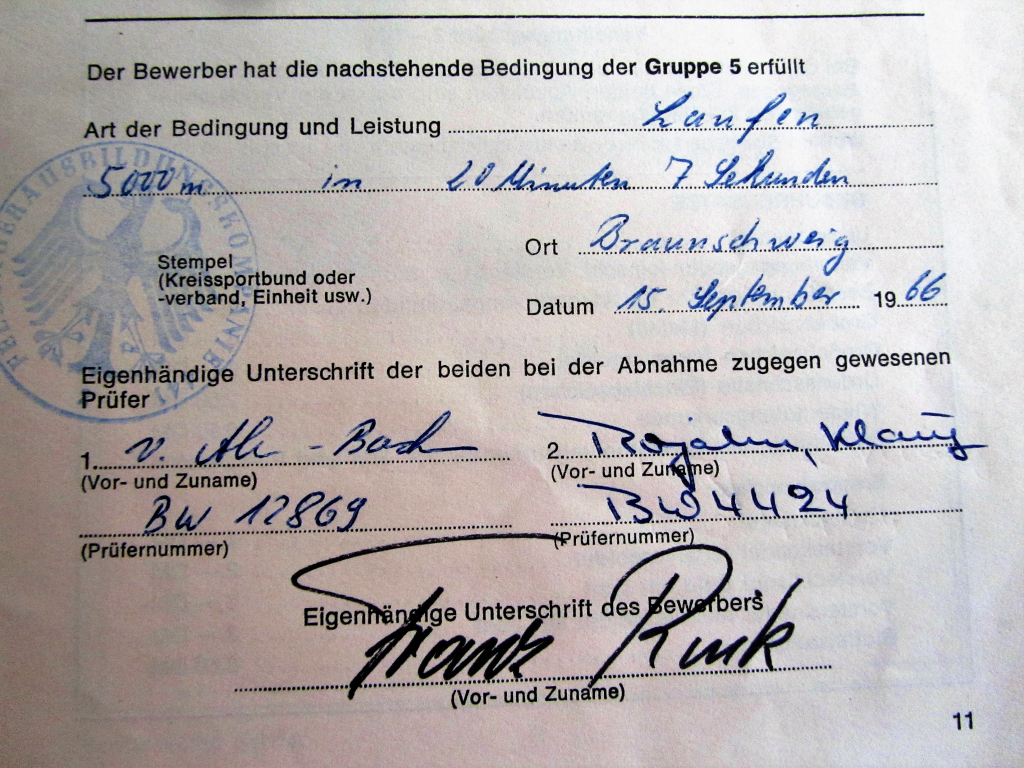 Der Bewerber hat die nachstehende Bedingung der Gruppe 5 erfüllt
Art der Bedingung und Leistung Laufen
5000 m in 20 Minuten 7 Sekunden
FELDJÄGERAUSBILDUNGSKOMPANIE
Stempel
(Kreissportbund oder
-verband, Einheit usw.)
Ort Braunschweig
Datum 15. September 1966
Eigenhändige Unterschrift der beiden bei der Abnahme zugegen gewesenen
Prüfer
1. v. - Bach 2. Rogahn, Klaus
(Vor- und Zuname) (Vor- und Zuname)
BW 12869 BW 4424
(Prüfernummer) (Prüfernummer)
Eigenhändige Unterschrift des Bewerbers
Franz Runk
(Vor- und Zuname)
11